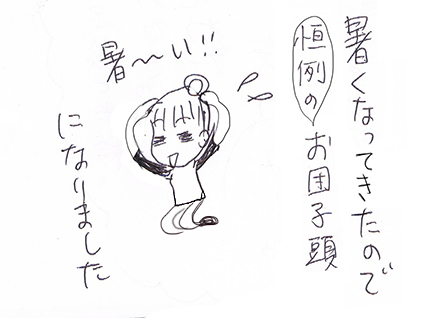 暑くなってきたので
恒例の
お団子頭
になりました
暑～い!!